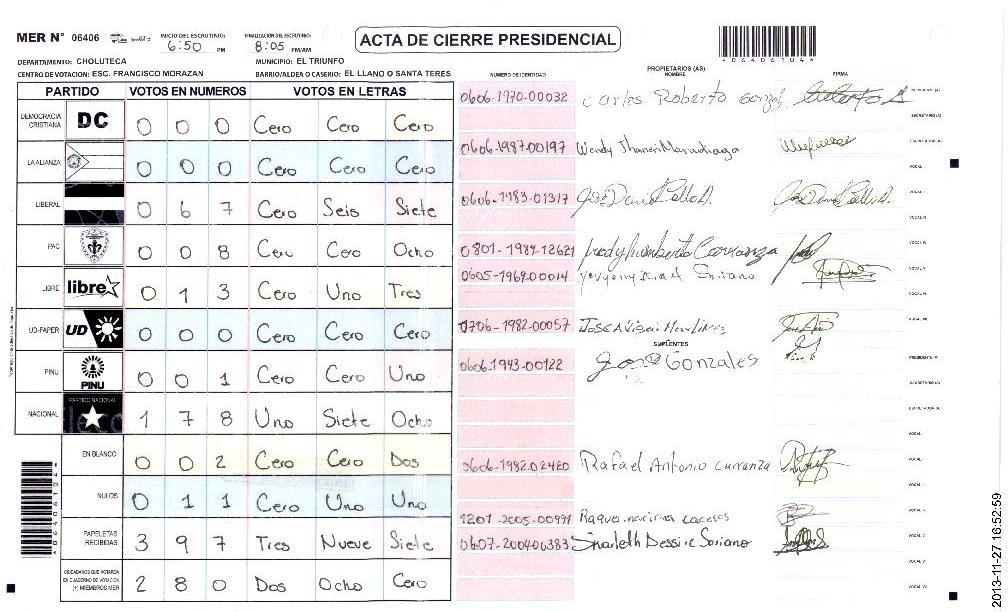 MER N° 06406 INICIO DEL ESCRUTINIO: 6:50 PM FINALIZACION DEL ESCRUTINIO: 8:05 PM/AM
ACTA DE CIERRE PRESIDENCIAL
*064061044*
DEPARTAMENTO: CHOLUTECA MUNICIPIO: EL TRIUNFO
CENTRO DE VOTACION: ESC. FRANCISCO MORAZAN BARRIO/ALDEA O CASERIO: EL LLANO O SANTA TERES
PARTIDO VOTOS EN NUMEROS VOTOS EN LETRAS
DEMOCRACIA CRISTIANA DC 0 0 0 Cero Cero Cero
LA ALIANZA 0 0 0 Cero Cero Cero
LIBERAL 0 6 7 Cero Seis Siete
PAC 0 0 8 Cero Cero Ocho
LIBRE libre 0 1 3 Cero Uno Tres
UD-FAPER UD 0 0 0 Cero Cero Cero
PINU PINU 0 0 1 Cero Cero Uno
NACIONAL PARTIDO NACIONAL 1 7 8 Uno Siete Ocho
EN BLANCO 0 0 2 Cero Cero Dos
NULOS 0 1 1 Cero Uno Uno
PAPELETAS RECIBIDAS 3 9 7 Tres Nueve Siete
CIUDADANOS QUE VOTARON EN CUADERNO DE VOTACION (+) MIEMBROS MER 2 8 0 Dos Ocho Cero
NUMERO DE IDENTIDAD PROPIETARIOS (AS) NOMBRE FIRMA
0606-1970-00032 Carlos Roberto
0606-1987-00197 Wendy
0606-1983-01317 José
0801-1984-12621 Fredy Humberto Carranza
0605-1969-00014 Soriano
0706-1982-00057 Jose Martinez
SUPLENTES
0606-1943-00122 José Gonzales
0606-1982-02420 Rafael Antonio Carranza
1201-2005-00991 Caceres
0607-2004-00383 Soriano
2013-11-27 16:52:59